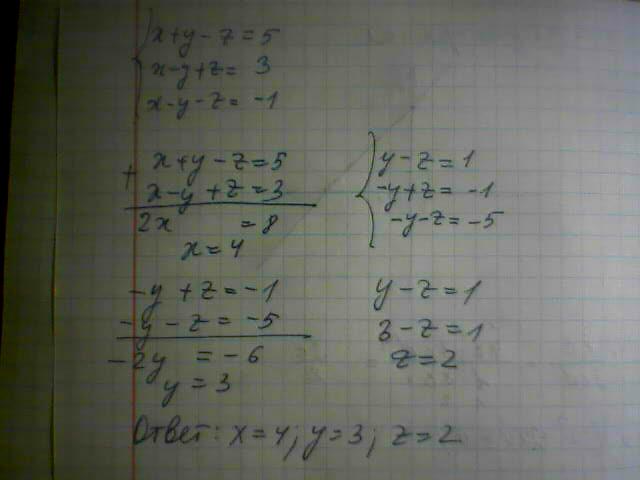 x+y-z=5
x-y+z= 3
x-y-z= -1
+ x+y-z=5
x-y+z=3
2x =8
x=4
y-z=1
-y+z= -1
-y-z= -5
-y+z=-1
-y-z= -5
-2y = -6
y=3
y-z=1
3-z=1
z=2
Ответ: x=4; y=3; z=2